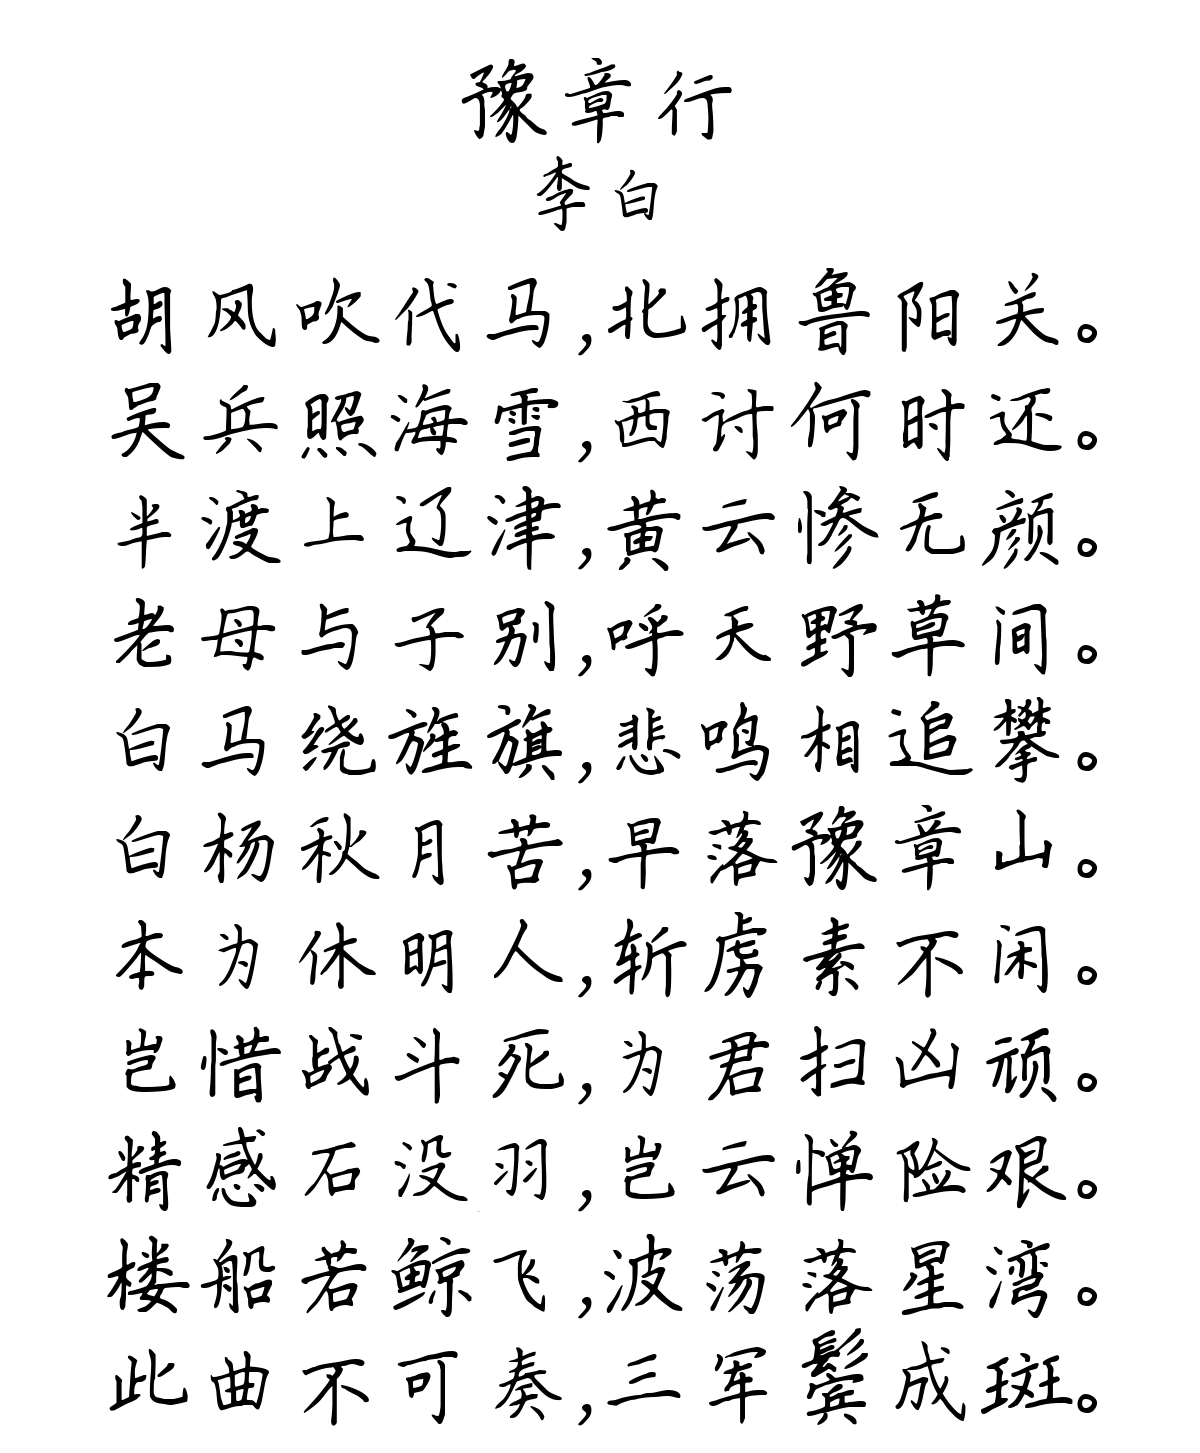 豫章行
李白
胡风吹代马,北拥鲁阳关。
吴兵照海雪,西讨何时还。
半渡上辽津,黄云惨无颜。
老母与子别,呼天野草间。
白马绕旌旗,悲鸣相追攀。
白杨秋月苦,早落豫章山。
本为休明人,斩虏素不闲。
岂惜战斗死,为君扫凶顽。
精感石没羽,岂云惮险艰。
楼船若鲸飞,波荡落星湾。
此曲不可奏,三军鬓成斑。